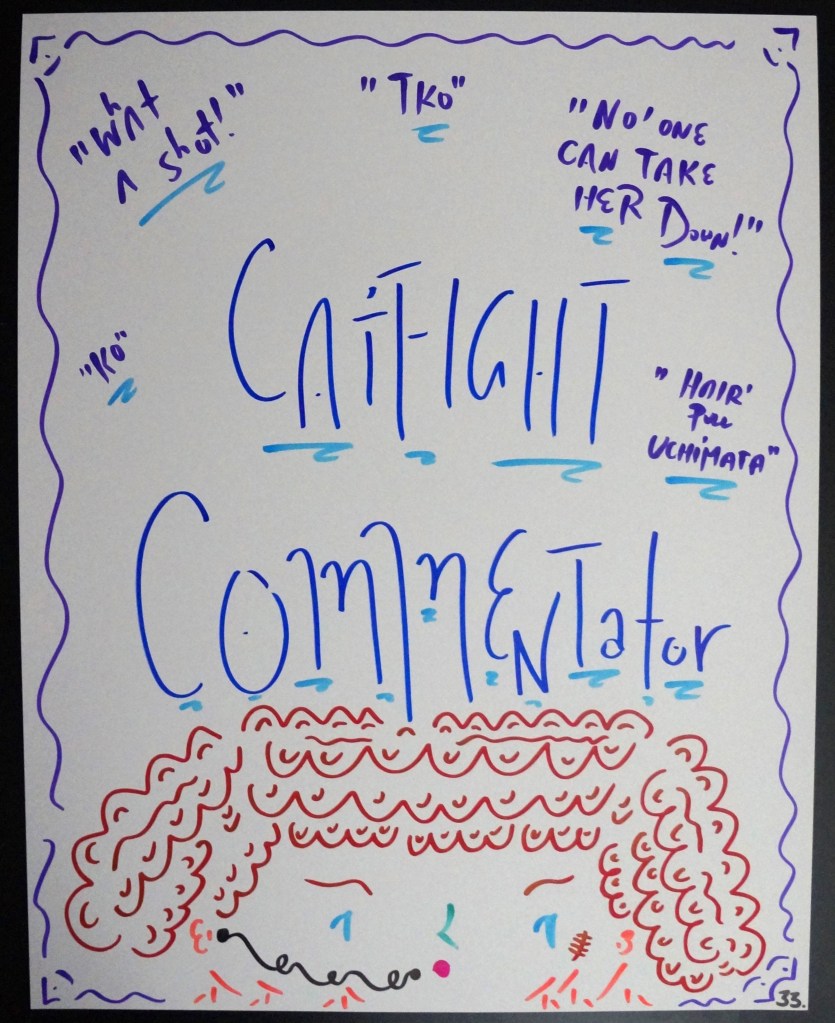 "What
A Shot!"
"TKO"
"NO'ONE
CAN TAKE
HER Down!"
CATFIGHT
"KO"
"HAIR'
Pull
UCHiMATA"
COMMENTator
33.